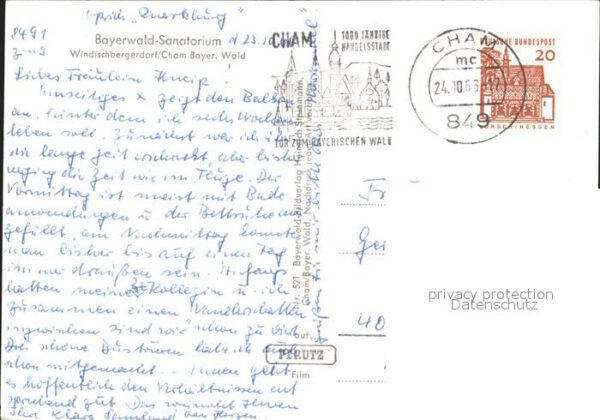 Bayerwald-Sanatorium d 23.10.
Windischbergerdorf/Cham Bayer. Wald
8491
Liebes Fräulein Kneip!
Umseitiges x zeigt den Balkon
an, hinter dem ich sechs Wochen
leben soll. Zunächst war ich über
die lange Zeit erschreckt, aber bisher
verging die Zeit wie im Fluge. Der
Vormittag ist meist mit Bade
anwendungen u. der Bettruhe
gefüllt, am Nachmittag konnte
man bisher bis auf einen Tag
immer draußen sein. Anfangs
hatten meine Kollegin u. ich
zusammen einen
inzwischen sind wir schon zu viert
Drei schöne Bustouren habe ich auch
schon mitgemacht. Ihnen geht
es hoffentlich den Verhältnissen ent
sprechend gut. Das wünscht Ihnen
Ihre Klara von Herzen.
CHAM
1000 JÄHRIGE
HANDELSSTADT
TOR ZUM BAYERISCHEN WALD
CHAM
mc
24.10.65
849
DEUTSCHE BUNDESPOST
20
LORSCH/HESSEN
Nr. 521 Bayerwald-Bildverlag Heinrich Steinmann,
Cham Bayer. Wald, Nachdruck jeder Art verboten
auf
PERUTZ
Film
Fr
Ger
40
privacy protection
Datenschutz